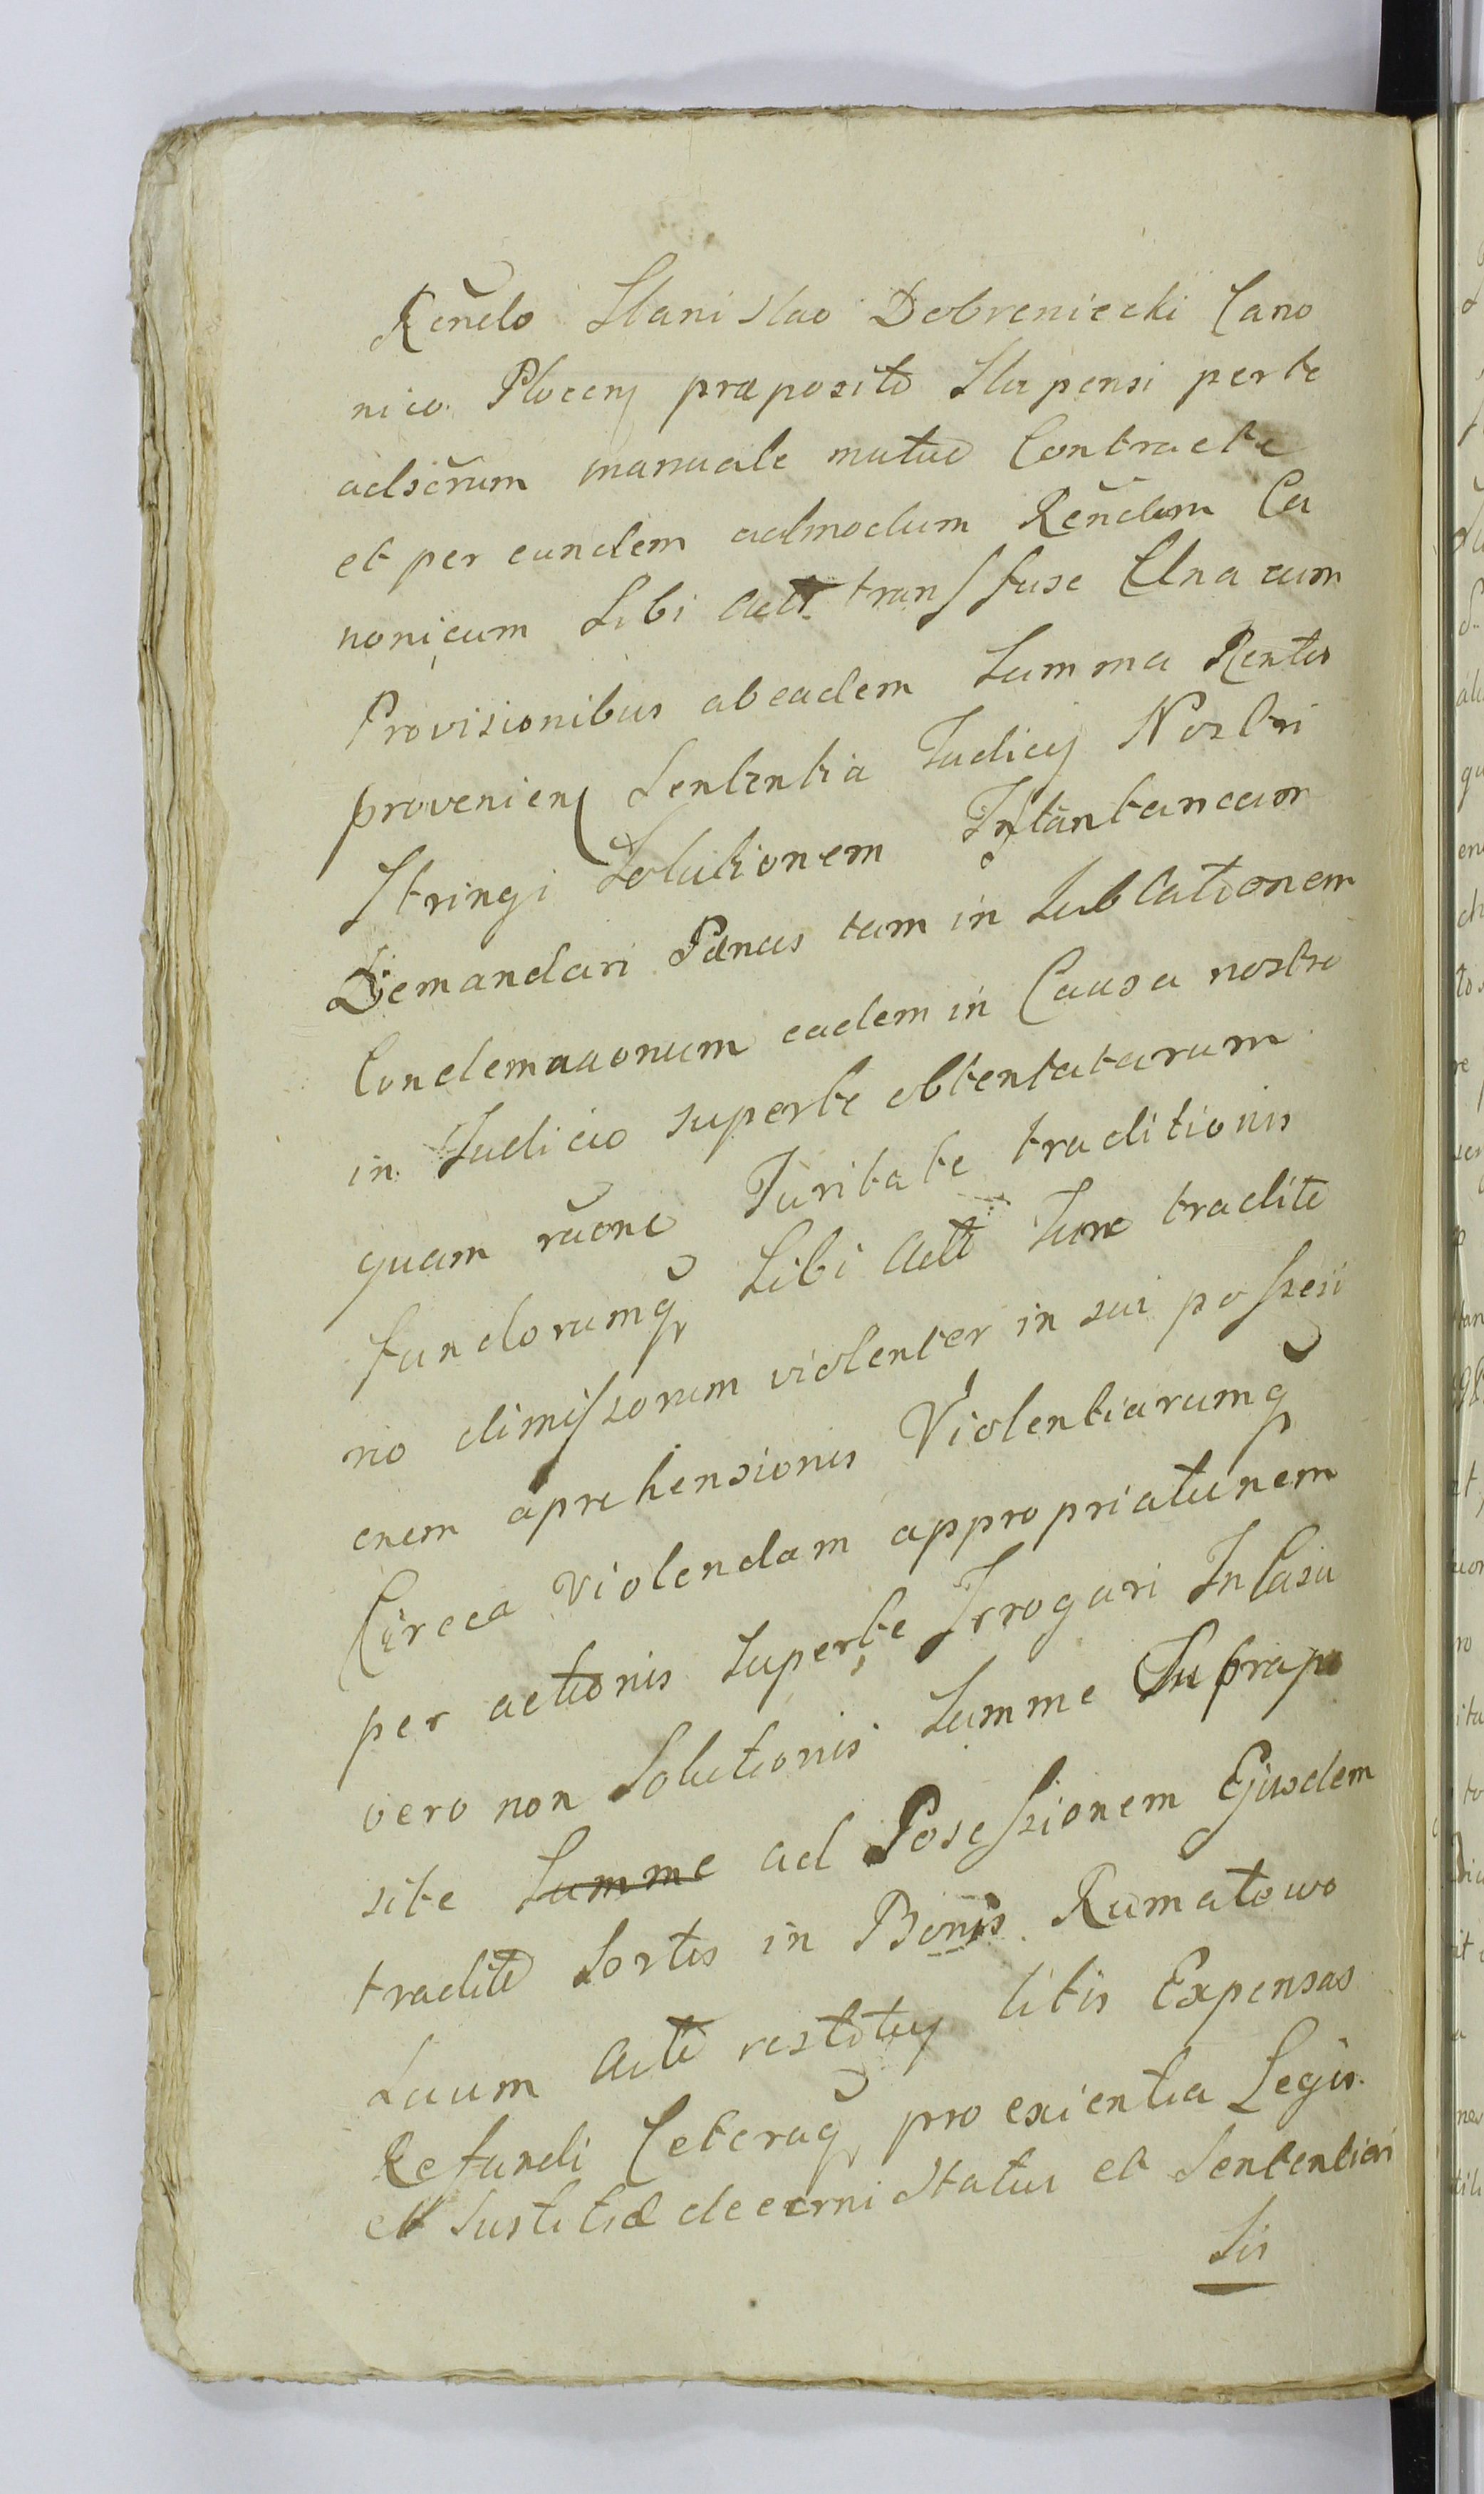 Rendo Stanislao Dobreniecki Cano
nico Plocen praposito Slupensi perte
adscrum manuale mutuo Contracte
et per eundem admodum Rendum Ca
nonicum Sibi Act transffuse Una cum
Provisionibus abeadem Summa Rentes
provenien Sententia Judicij Nostri
Stringi Solutionem Instantaneam
Demandari Panas tam in Sublationem
Condemnaonum eadem in Causa nostro
in Judicio superte obtentatarum
quam raone Juritate traditionis
fundorumq Sibi Act Jure tradite
rio dimissorum violenter in sui possesi
onem aprehensionis Violentiarumq
Circca violendam appropriatunem
per actionis Superte Irrogari In Casu
vero non Solutionis Summe Suprapo
site Summe ad Posessionem Ejusdem
tradite Sortis in Bonis Rumatowo
Suum Acte restituy litis Expensas
Refundi Ceteraq pro exientia Legis
et Justitiæ decerni Status et Sententiari
Sis